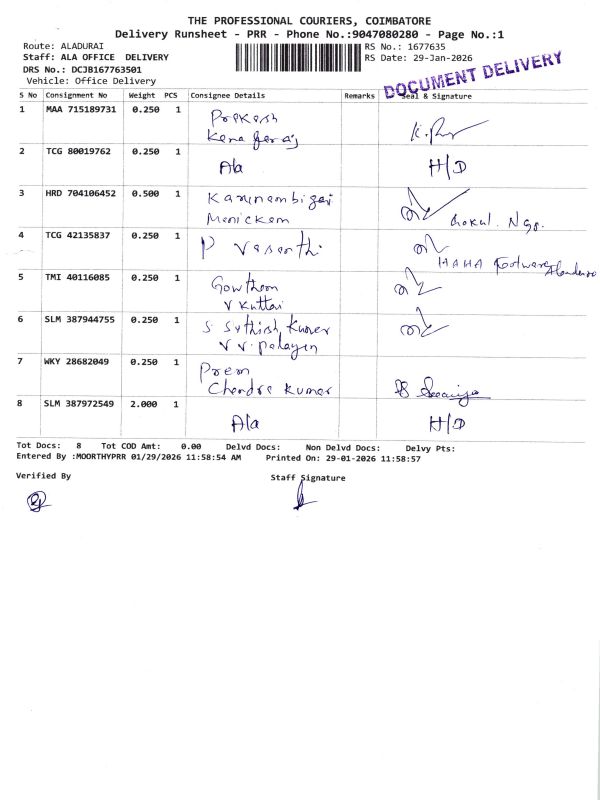 THE PROFESSIONAL COURIERS, COIMBATORE
Delivery Runsheet - PRR - Phone No.:9047080280 - Page No.:1
Route: ALADURAI
RS No.: 1677635
Staff: ALA OFFICE DELIVERY
RS Date: 29-Jan-2026
DRS No.: DCJB167763501
Vehicle: Office Delivery
DOCUMENT DELIVERY
S No Consignment No Weight PCS Consignee Details Remarks Seal & Signature
1 MAA 715189731 0.250 1 Prakash
2 TCG 80019762 0.250 1 Ala H/D
3 HRD 704106452 0.500 1 Karunambigai
Manickam Gokul
4 TCG 42135837 0.250 1 P Vasanthi
HAHA Footware
5 TMI 40116085 0.250 1 Gowtham
V Kuttai
6 SLM 387944755 0.250 1 S Sathish Kumar
V V. Palayam
7 WKY 28682049 0.250 1 Prem
Chandra Kumar
8 SLM 387972549 2.000 1 Ala H/D
Tot Docs: 8 Tot COD Amt: 0.00 Delvd Docs: Non Delvd Docs: Delvy Pts:
Entered By :MOORTHYPRR 01/29/2026 11:58:54 AM Printed On: 29-01-2026 11:58:57
Verified By Staff Signature